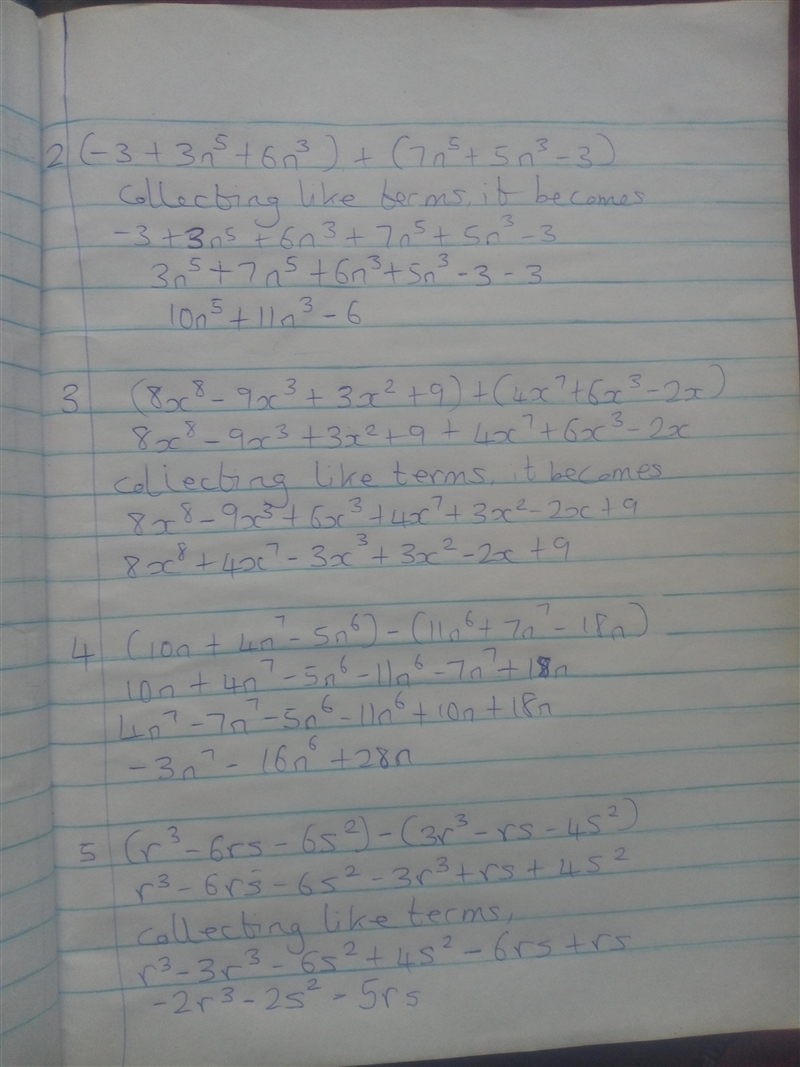 2 (-3 + 3n⁵ + 6n³) + (7n⁵ + 5n³ - 3)
Collecting like terms, it becomes
-3 + 3n⁵ + 6n³ + 7n⁵ + 5n³ - 3
3n⁵ + 7n⁵ + 6n³ + 5n³ - 3 - 3
10n⁵ + 11n³ - 6
3 (8x⁸ - 9x³ + 3x² + 9) + (4x⁷ + 6x³ - 2x)
8x⁸ - 9x³ + 3x² + 9 + 4x⁷ + 6x³ - 2x
collecting like terms, it becomes
8x⁸ - 9x³ + 6x³ + 4x⁷ + 3x² - 2x + 9
8x⁸ + 4x⁷ - 3x³ + 3x² - 2x + 9
4 (10n + 4n⁷ - 5n⁶) - (11n⁶ + 7n⁷ - 18n)
10n + 4n⁷ - 5n⁶ - 11n⁶ - 7n⁷ + 18n
4n⁷ - 7n⁷ - 5n⁶ - 11n⁶ + 10n + 18n
-3n⁷ - 16n⁶ + 28n
5 (r³ - 6rs - 6s²) - (3r³ - rs - 4s²)
r³ - 6rs - 6s² - 3r³ + rs + 4s²
collecting like terms,
r³ - 3r³ - 6s² + 4s² - 6rs + rs
-2r³ - 2s² - 5rs